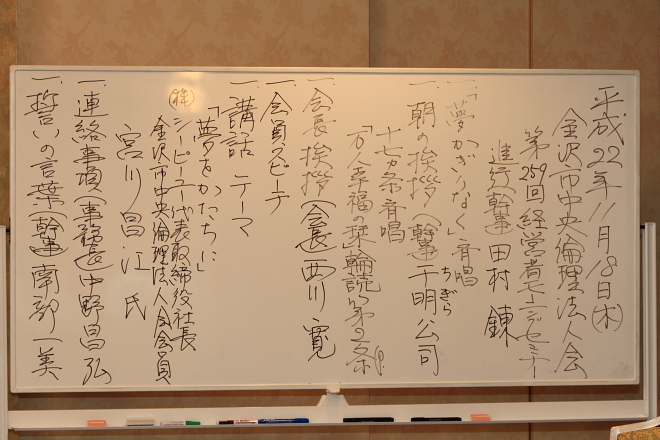 平成22年11月18日(木)
金沢市中央倫理法人会
第259回 経営者モーニングセミナー
進行(幹事) 田村 錬
一.「夢かぎりなく」斉唱
一.朝の挨拶(幹事)千明公司
ちぎら
十七カ条斉唱
「万人幸福の栞」輪読 第2条
一.会長挨拶(会長)西川 寛
一.会員スピーチ
一.講話 テーマ
「夢をかたちに」
(株)シーピーユー代表取締役社長
金沢市中央倫理法人会会員
宮川昌江氏
一.連絡事項(事務長)中野昌弘
一.誓いの言葉(幹事)南部一美